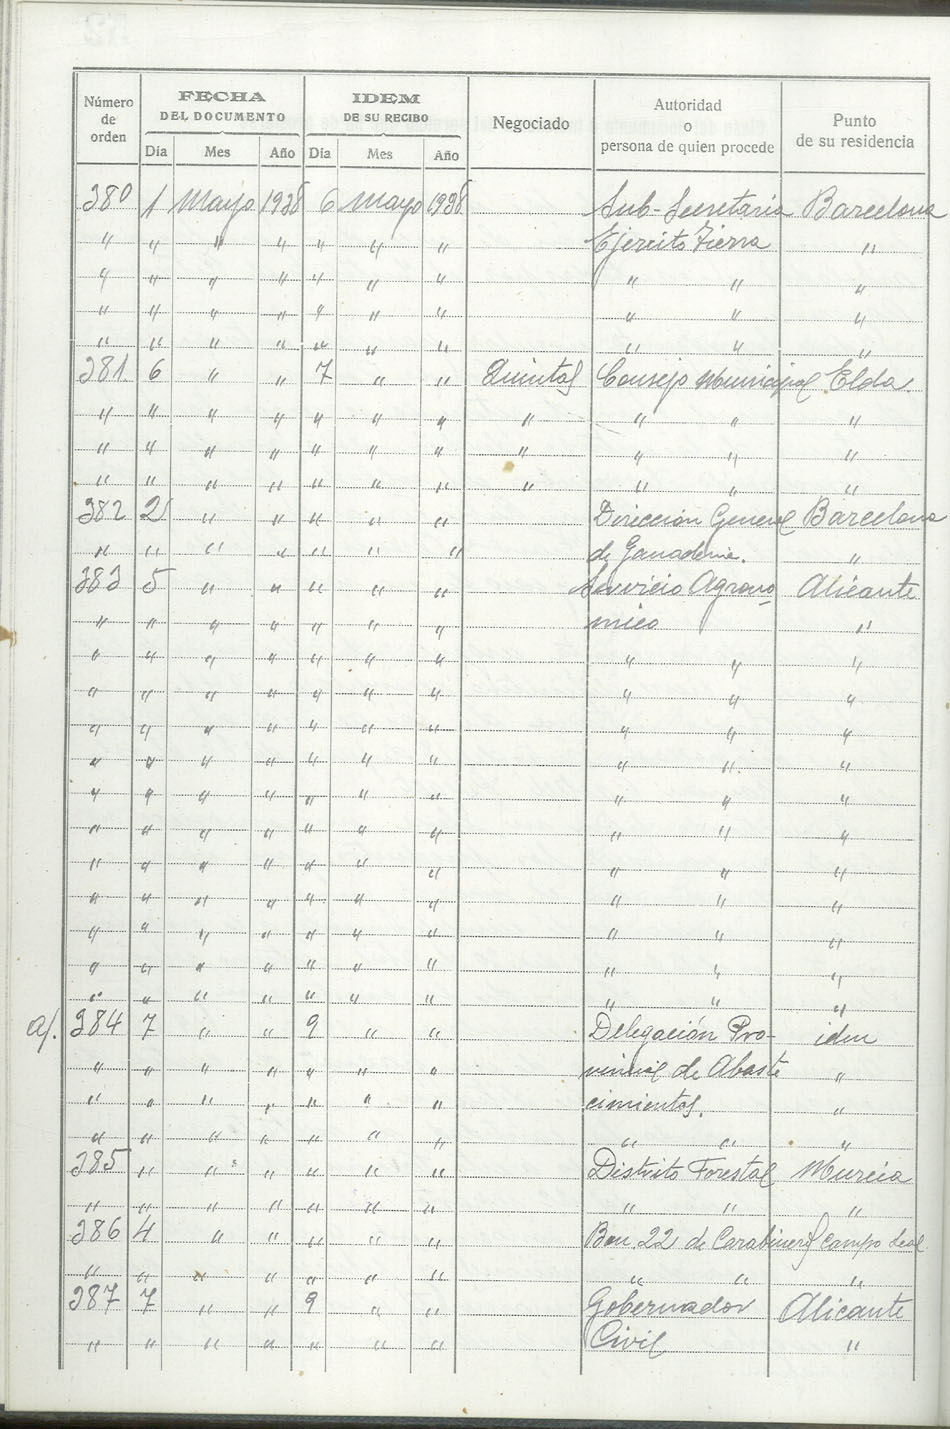 Número de orden | FECHA DEL DOCUMENTO | IDEM DE SU RECIBO | Negociado | Autoridad o persona de quien procede | Punto de su residencia
Día | Mes | Año | Día | Mes | Año
380 1 Mayo 1938 6 Mayo 1938 Sub-Secretaria Barcelona
" " " " " " " Ejercito Tierra "
" " " " " " " " " "
" " " " " " " " " "
" " " " " " " " " "
381 6 " " 7 " " Quintas Consejo Municipal Elda
" " " " " " " " " " "
" " " " " " " " " " "
" " " " " " " " " " "
382 2 " " " " " Dirección General Barcelona
" " " " " " " de Ganaderia. "
383 5 " " " " " Servicio Agrono- Alicante
" " " " " " " mico "
" " " " " " " " " "
" " " " " " " " " "
" " " " " " " " " "
" " " " " " " " " "
" " " " " " " " " "
" " " " " " " " " "
" " " " " " " " " "
" " " " " " " " " "
" " " " " " " " " "
" " " " " " " " " "
" " " " " " " " " "
a/. 384 7 " " 9 " " Delegación Pro- idem
" " " " " " " vincial de Abaste "
" " " " " " " cimientos. "
" " " " " " " " " "
385 " " " " " " Distrito Forestal Murcia
" " " " " " " " " "
386 4 " " " " " Bon. 22 de Carabineros Campo
" " " " " " " " " "
387 7 " " 9 " " Gobernador Alicante
" " " " " " " Civil "